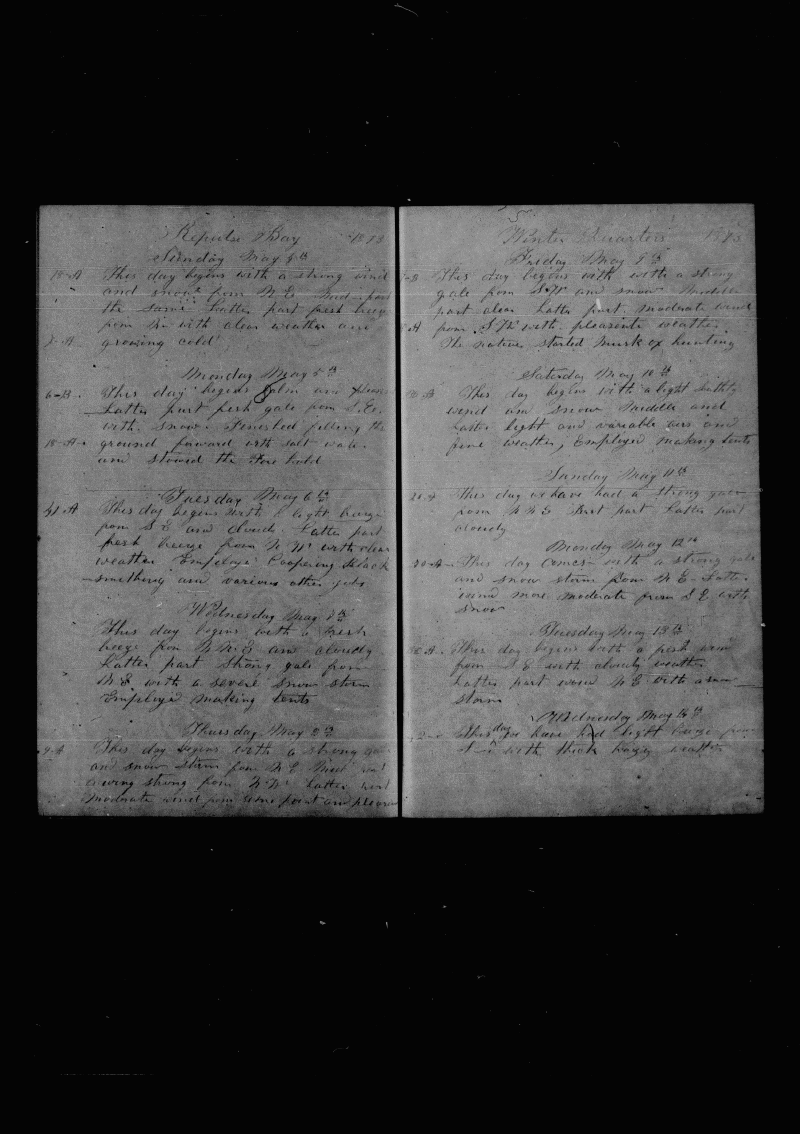 Repulse Bay 1873
Sunday May 4th
18-A This day begins with a strong wind
and snow from N E Mid part
the same Latter part fresh breeze
from N. with clear weather and
8-A growing cold
Monday May 5th
6-B. This day begins calm and
Latter part fresh gale from S.E.
with snow. Finished filling the
18-A ground forward with salt water
and stowed the Fore hold
Tuesday May 6th
4-A This day begins with a light breeze
from S E and cloudy Latter part
fresh breeze from N W with clear
weather Employed Coopering Black
smithing and various other jobs
Wednesday May 7th
This day begins with a fresh
breeze from N N E and cloudy
Latter part strong gale from
N E with a severe snow storm
Employed making tents
Thursday May 8th
9-A This day begins with a strong gale
and snow storm from N E Mid
strong from N W Latter part
Moderate wind from same point and pleasant
Winter Quarters 1873
Friday May 9th
This day begins with with a strong
gale from S W and snow Middle
part clear Latter part Moderate wind
A from S W with pleasante weather
The natives started Musk ox hunting
Saturday May 10th
This day begins with a light
wind and snow Middle and
Latter light and variable airs and
fine weather, Employed making tents
Sunday May 11th
This day we have had a strong gale
from N N E first part Latter part
cloudy
Monday May 12th
20-A This day comes with a strong gale
and snow storm from N E Latter
wind more moderate from S E with
snow
Tuesday May 13th
A This day begins with a fresh wind
from S E with cloudy weather
Latter part wind N E with a snow
storm
Wednesday May 14th
This day we have had light breeze from
with thick hazy weather